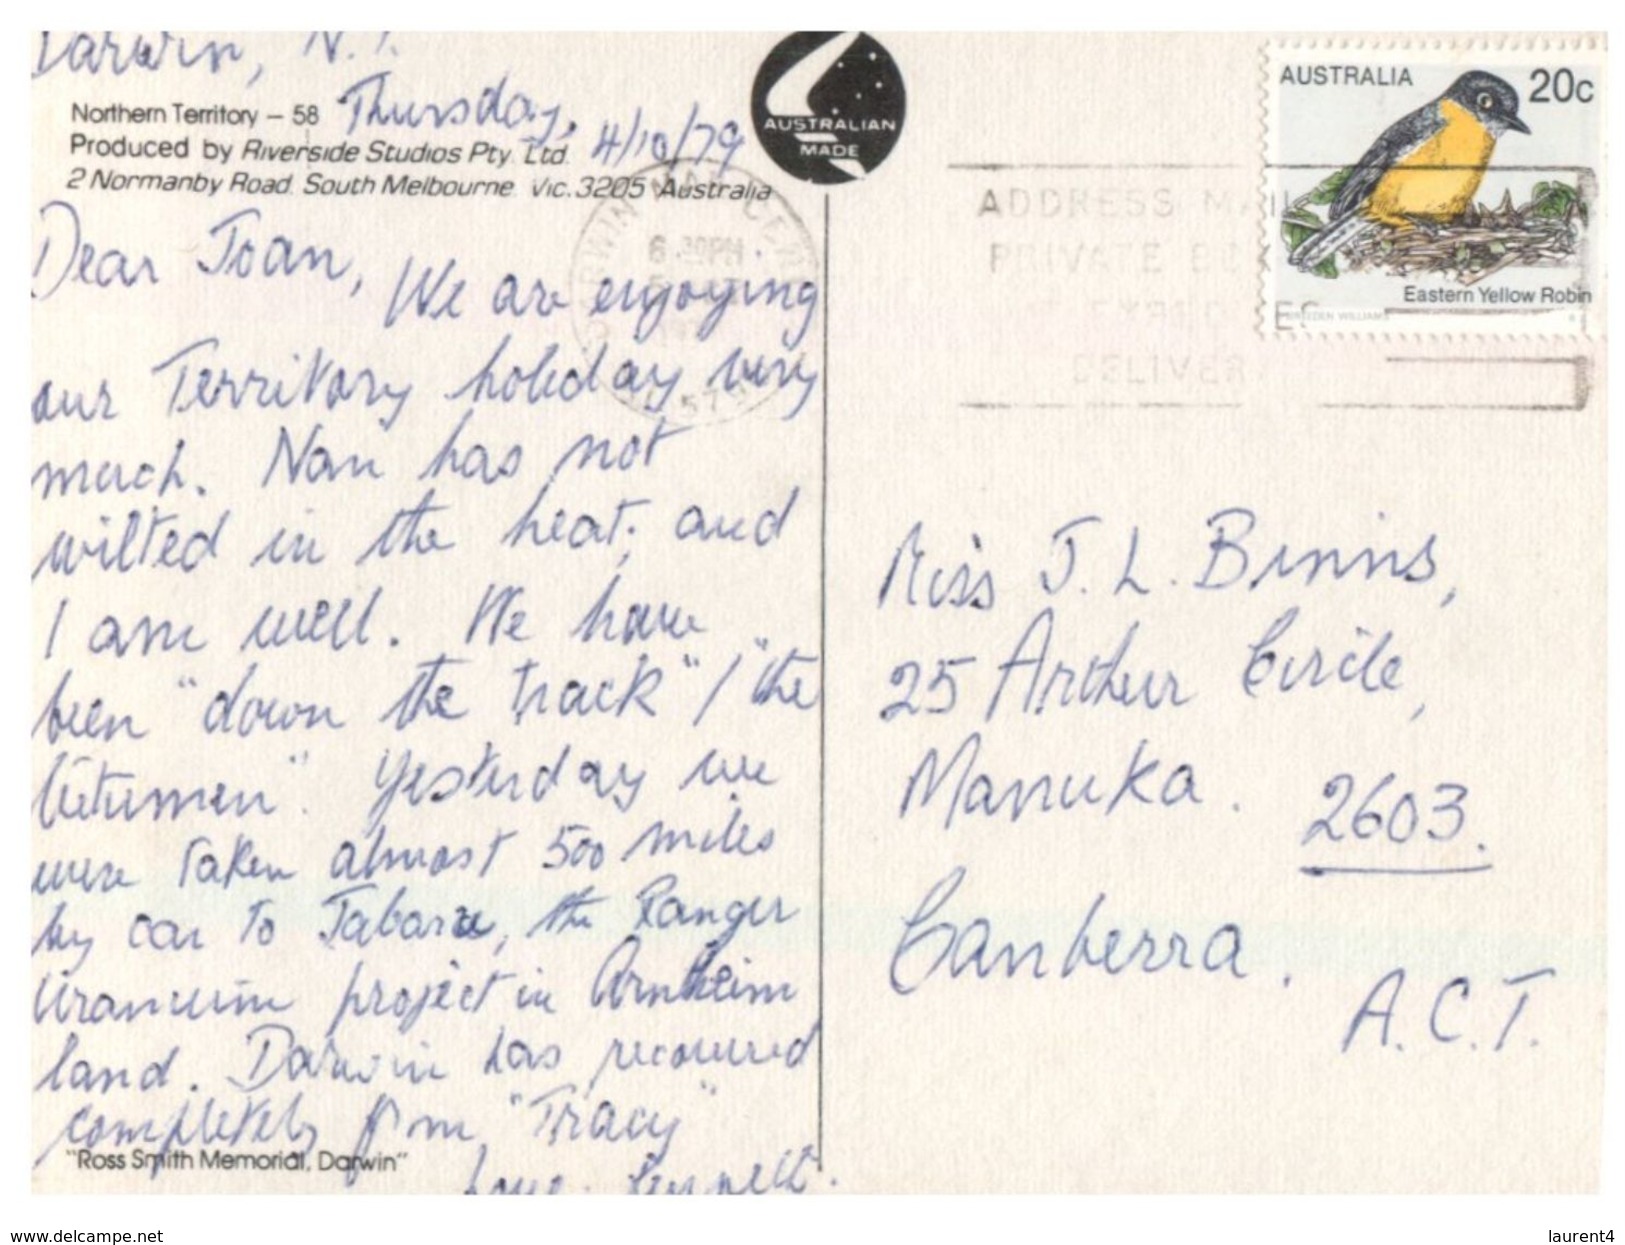 Darwin, N.T.
Thursday, 4/10/79
Northern Territory – 58
Produced by Riverside Studios Pty. Ltd.
2 Normanby Road. South Melbourne. Vic. 3205 Australia
AUSTRALIAN
MADE
Dear Joan, We are enjoying
our Territory holiday very
much. Nan has not
wilted in the heat; and
I am well. We have
been "down the track" / "the
bitumen". Yesterday we
were taken almost 500 miles
by car to Jabaru, the Ranger
Uranium project in Arnheim
land. Darwin has recovered
completely from "Tracy"
Love.
"Ross Smith Memorial, Darwin"
AUSTRALIA 20c
Eastern Yellow Robin
ADDRESS MAIL
PRIVATE BOX
DELIVER
6.30PM
Miss J. L. Binns,
25 Arthur Circle,
Manuka. 2603.
Canberra.
A.C.T.
www.delcampe.net
laurent4